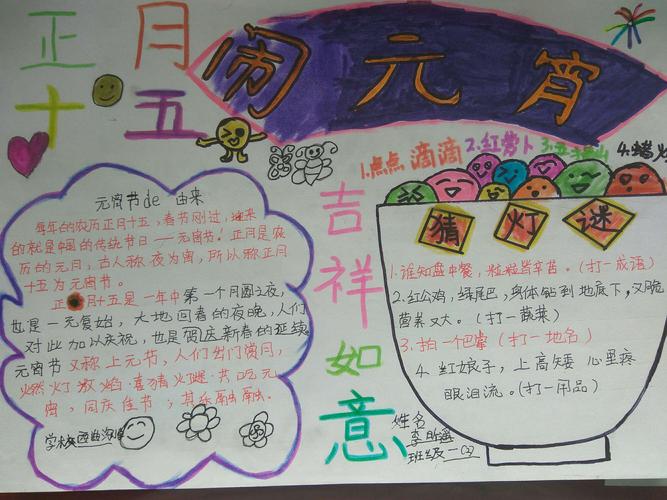 正月
十五
闹元宵
1.点点滴滴 2.红萝卜 3.五指山 4.蜡火
元宵节de 由来
每年的农历正月十五，春节刚过，迎来
的就是中国的传统节日——元宵节！正月是农
历的元月，古人称夜为宵，所以称正月
十五为元宵节。
正月十五是一年中第一个月圆之夜，
也是一元复始，大地回春的夜晚，人们
对此加以庆祝，也是贺庆新春的延续
元宵节又称上元节，人们出门赏月，
燃灯放焰、喜猜灯谜、共吃元
宵，同庆佳节，其乐融融。
学校
吉祥如意
猜灯谜
1.谁知盘中餐，粒粒皆辛苦。（打一成语）
2.红公鸡，绿尾巴，身体钻到地底下，又脆
营养又大。（打一蔬菜）
3.拍一个巴掌（打一地名）
4.红娘子，上高矮 心里疼
眼泪流。（打一用品）
姓名
李
班级一(2)